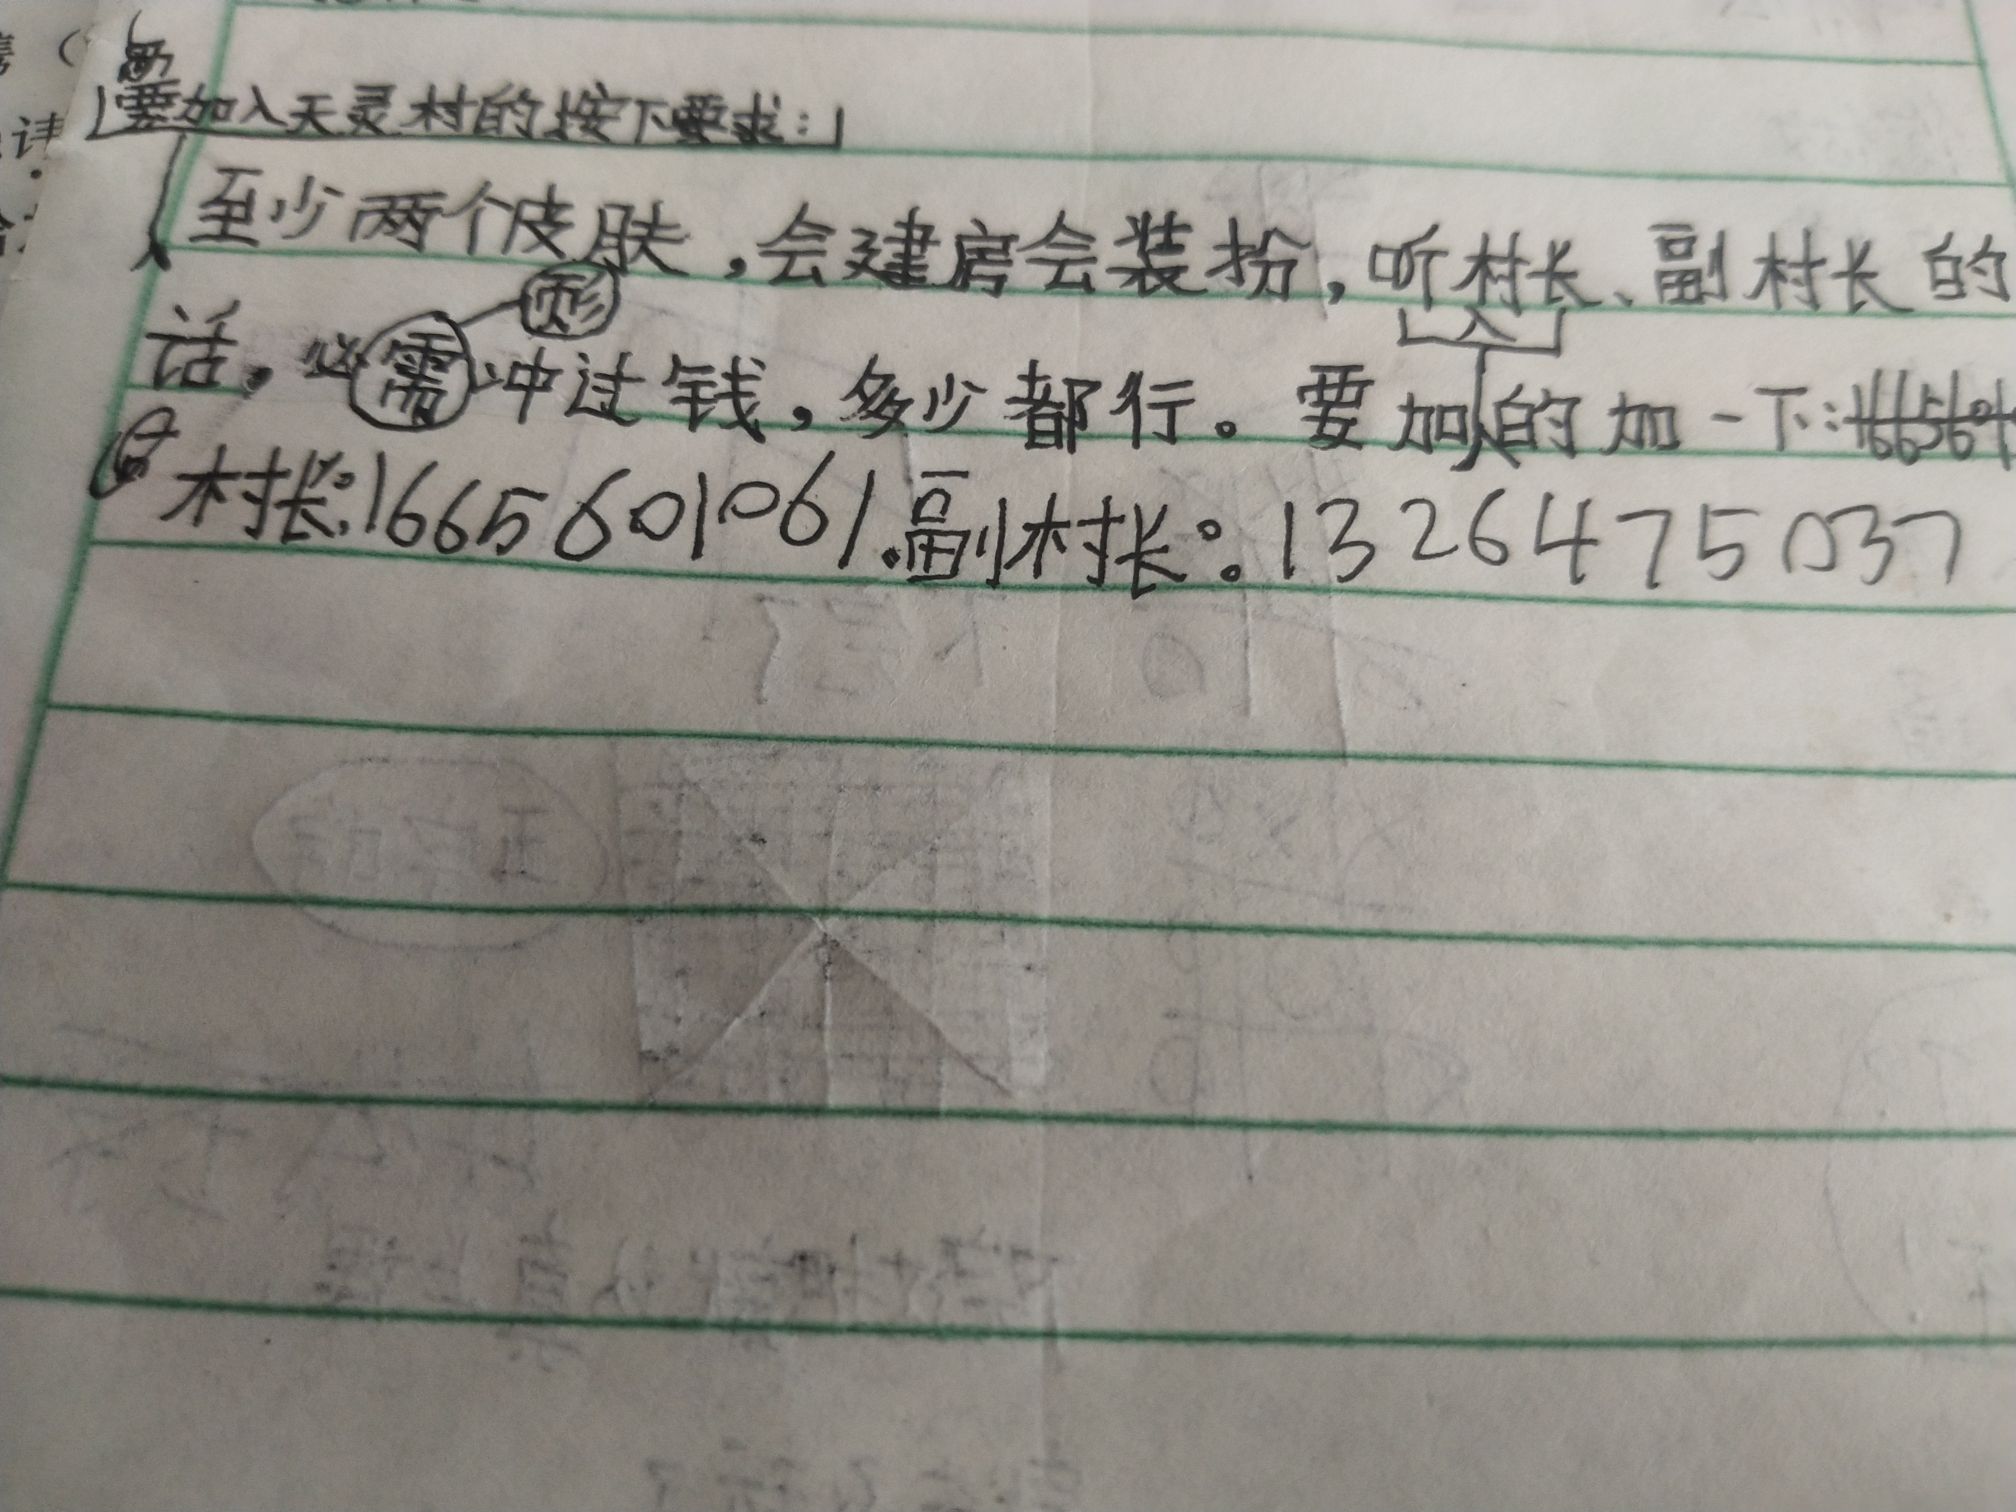 要加入天灵村的按下要求：
至少两个皮肤，会建房会装扮，听村长、副村长的
话，必需冲过钱，多少都行。要加入的加一下：
村长：1665601061.副村长：1326475037